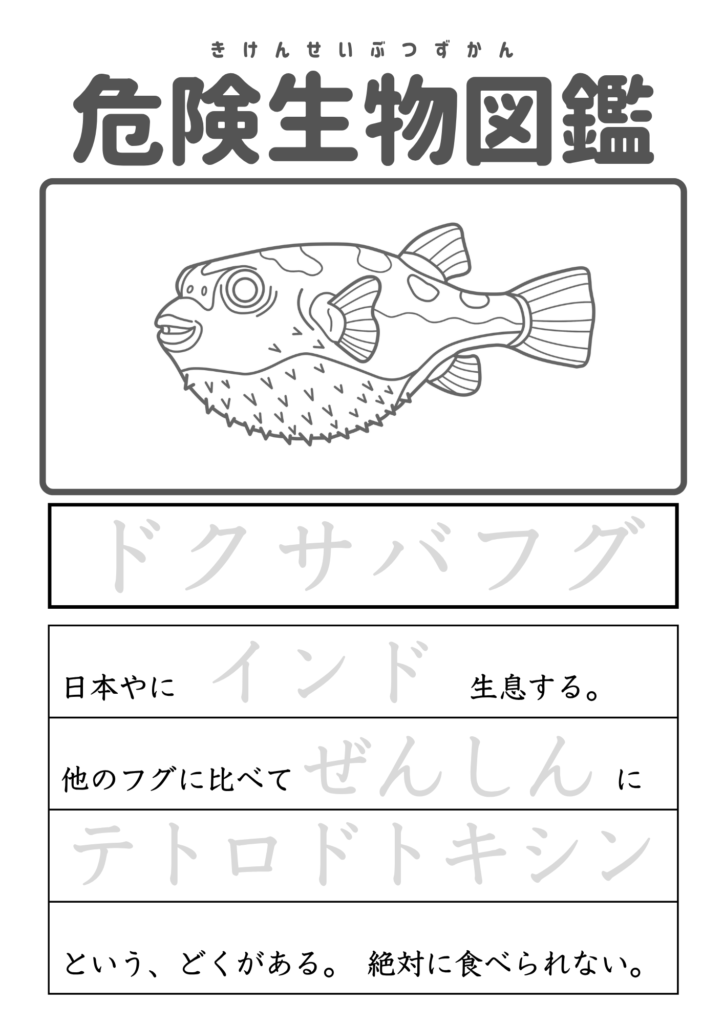 きけんせいぶつずかん
危険生物図鑑
ドクサバフグ
日本やに インド 生息する。
他のフグに比べて ぜんしん に
テトロドトキシン
という、どくがある。 絶対に食べられない。